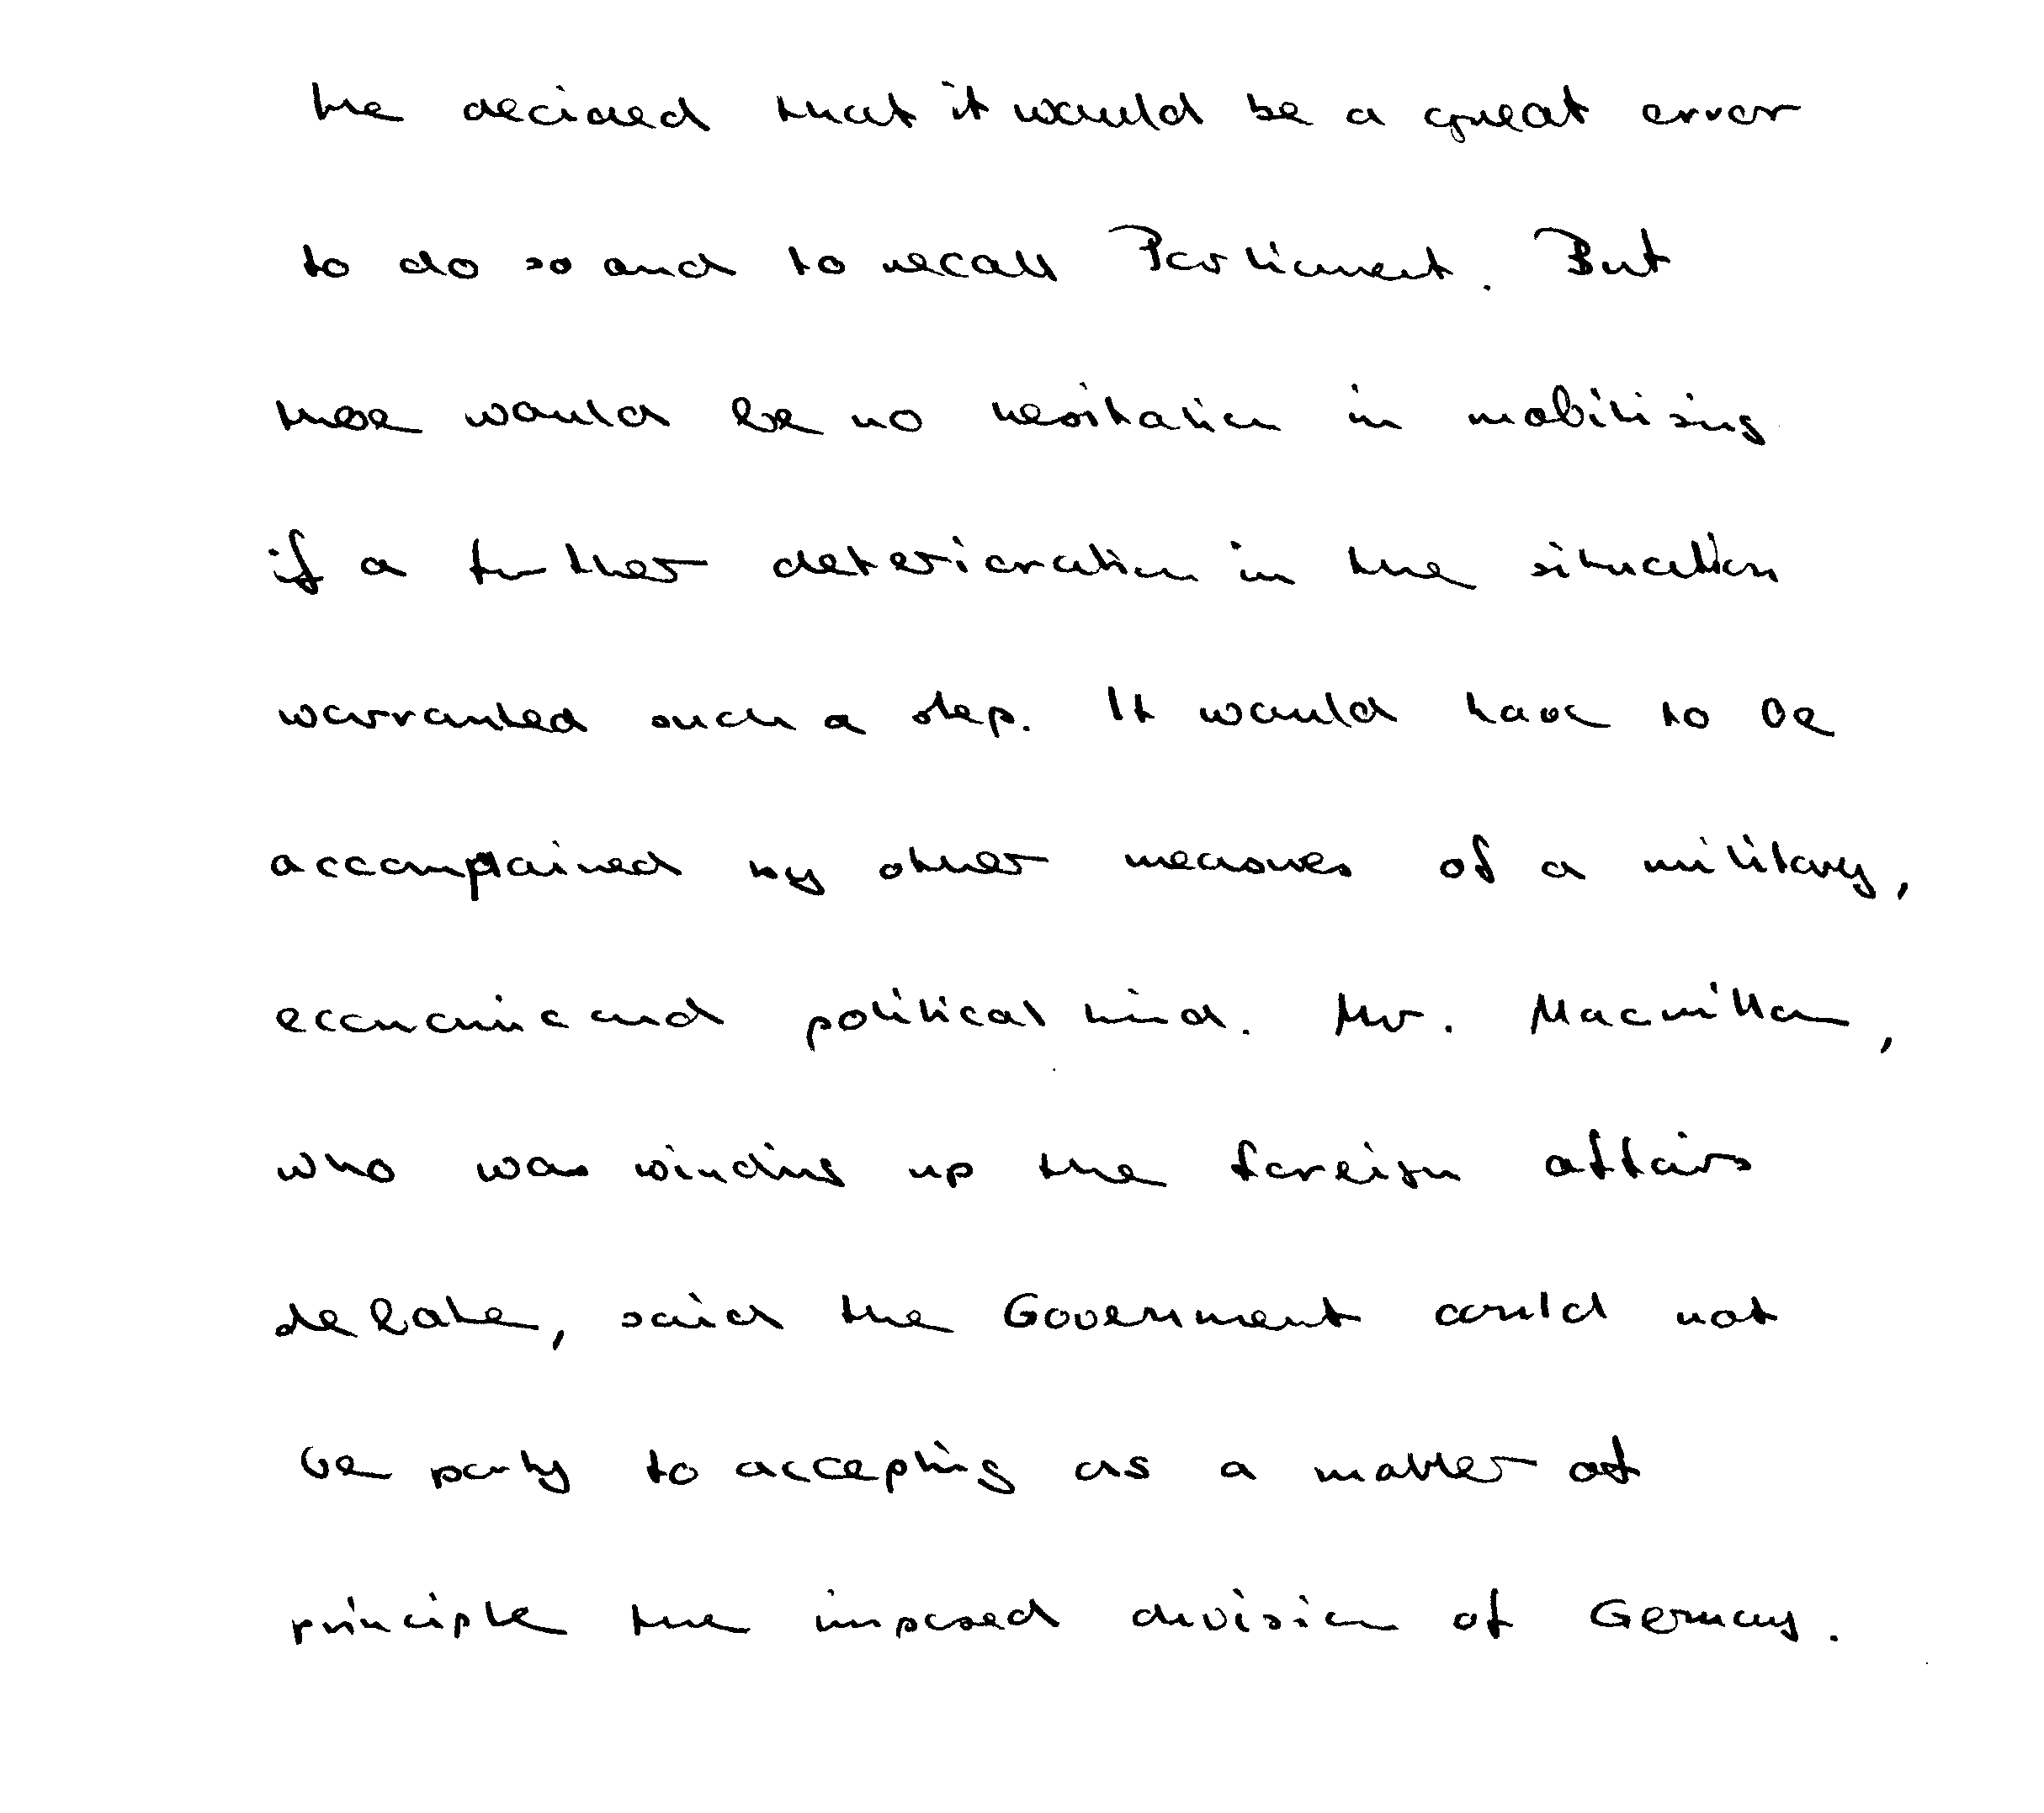 he decided that it would be a great error
to do so and to recall Parliament. But
there would be no hesitation in mobilising
if a further deterioration in the situation
warranted such a step. It would have to be
accompained by other measures of a military,
economic and political kind. Mr. Macmillan,
who was winding up the foreign affairs
debate, said the Government could not
be party to accepting as a matter of
principle the imposed division of Germany.